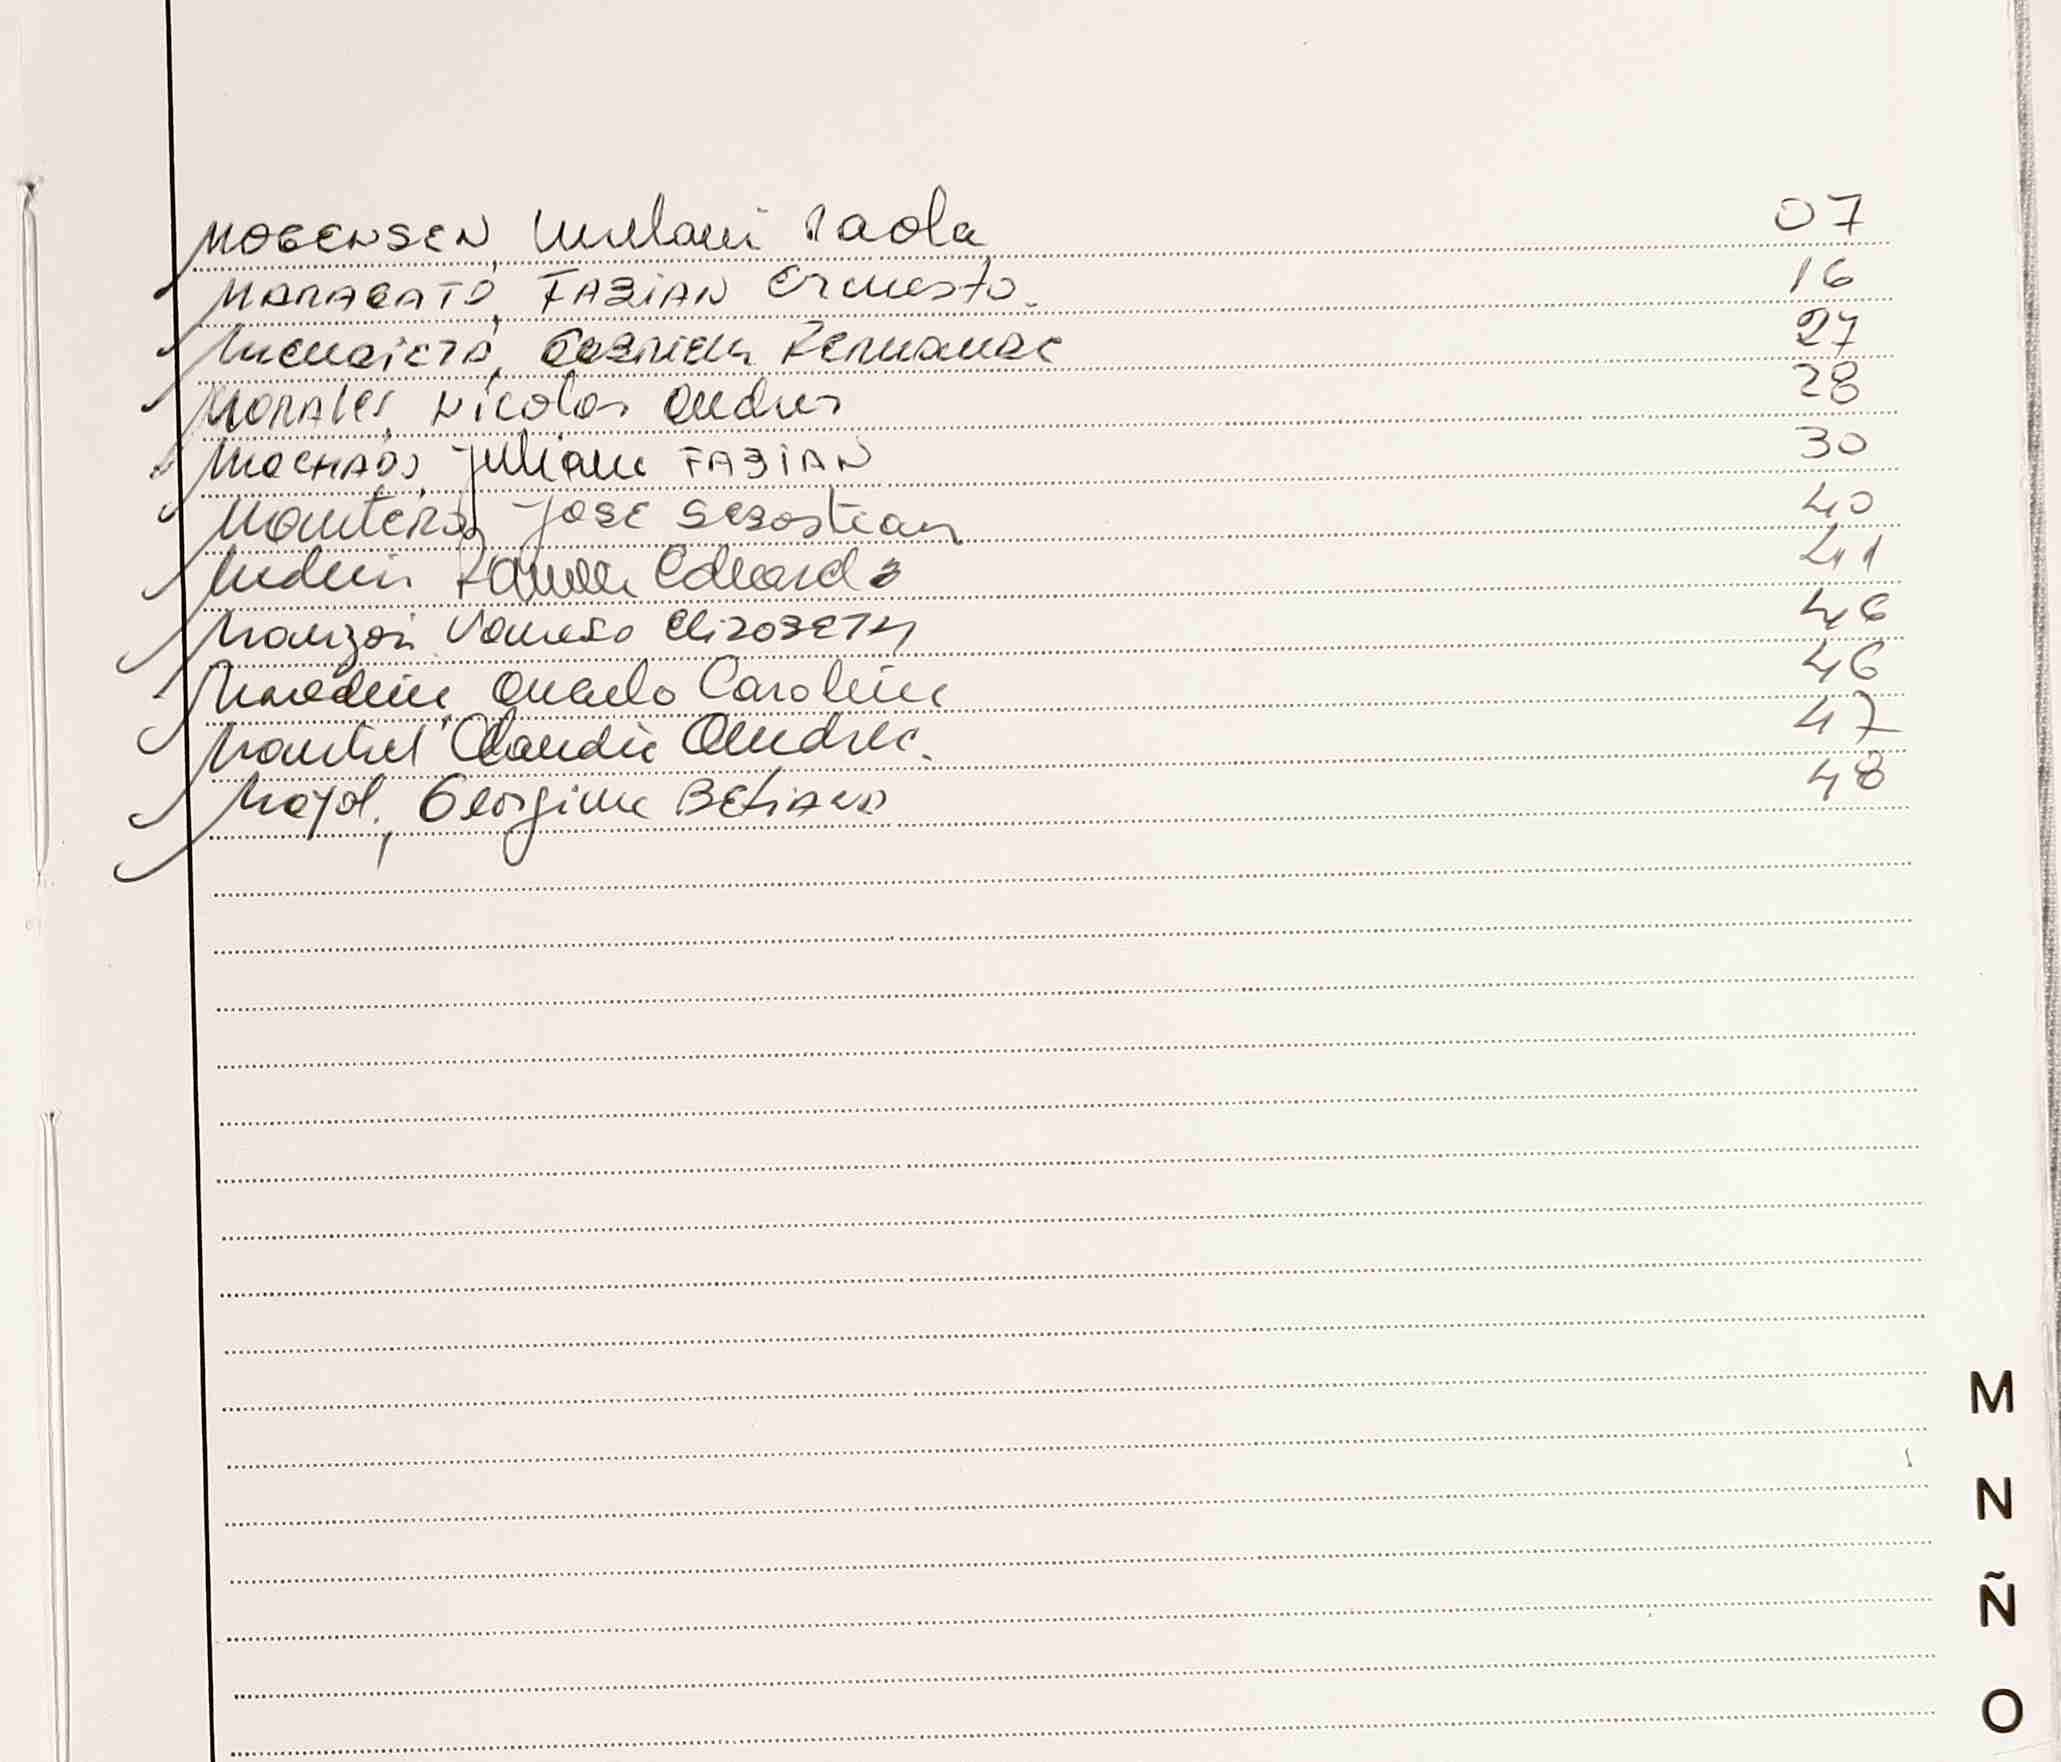 MOGENSEN, Melani Paola 07
MARAGATO, FABIAN Ernesto. 16
Mendieta, Gabriela Fernanda 27
MORALES, Nicolas Andres 28
MACHADO, Julian FABIAN 30
Montero, Jose Sebastian 40
Medina Eduardo 41
Monzon Vanesa Elizabeth 46
Analo Carolina 46
Claudia Andrea. 47
Georgina BETIANA 48
M
N
Ñ
O